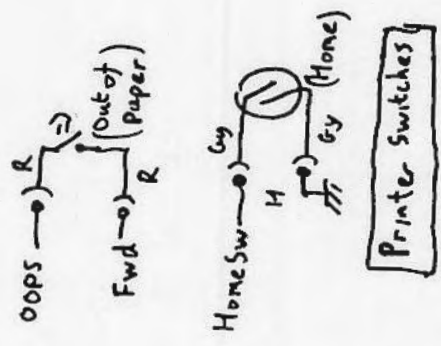 OOPS
R
(Out of
Paper)
Fwd
R
HomeSw
Gy
H
(Home)
Gy
Printer Switches